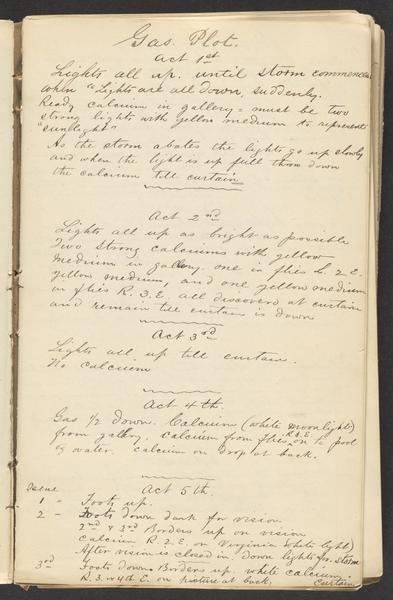 Gas. Plot.
Act 1st
Lights all up. until storm commences
when "Lights are all down, suddenly.
Ready calcium in gallery - must be two
strong lights with yellow medium to represent
"sunlight"
As the storm abates the lights go up slowly
and when the light is up full throw down
the calcium till curtain
Act 2nd
Lights all up as bright as possible
Two strong calciums with yellow
medium in gallery. one in flies L. 2. E.
yellow medium, and one yellow medium
in flies R. 3. E. all discovered at curtain
and remain till curtain is down
Act 3rd
Lights all up till curtain.
No calcium
Act 4th.
Gas 1/2 down. Calcium (white moonlight)
from gallery. calcium from flies R.2.E. on to pool
of water. calcium on drop at back.
Act 5th.
1 - Foots up.
2 - Foots down dark for vision
2nd & 3rd Borders up on vision
Calcium R. 2. E. on Virginia (white light)
After vision is closed in. down lights for storm
3rd Foots down. Borders up. white calcium
R. 3. or 4th E. on picture at back. Curtain